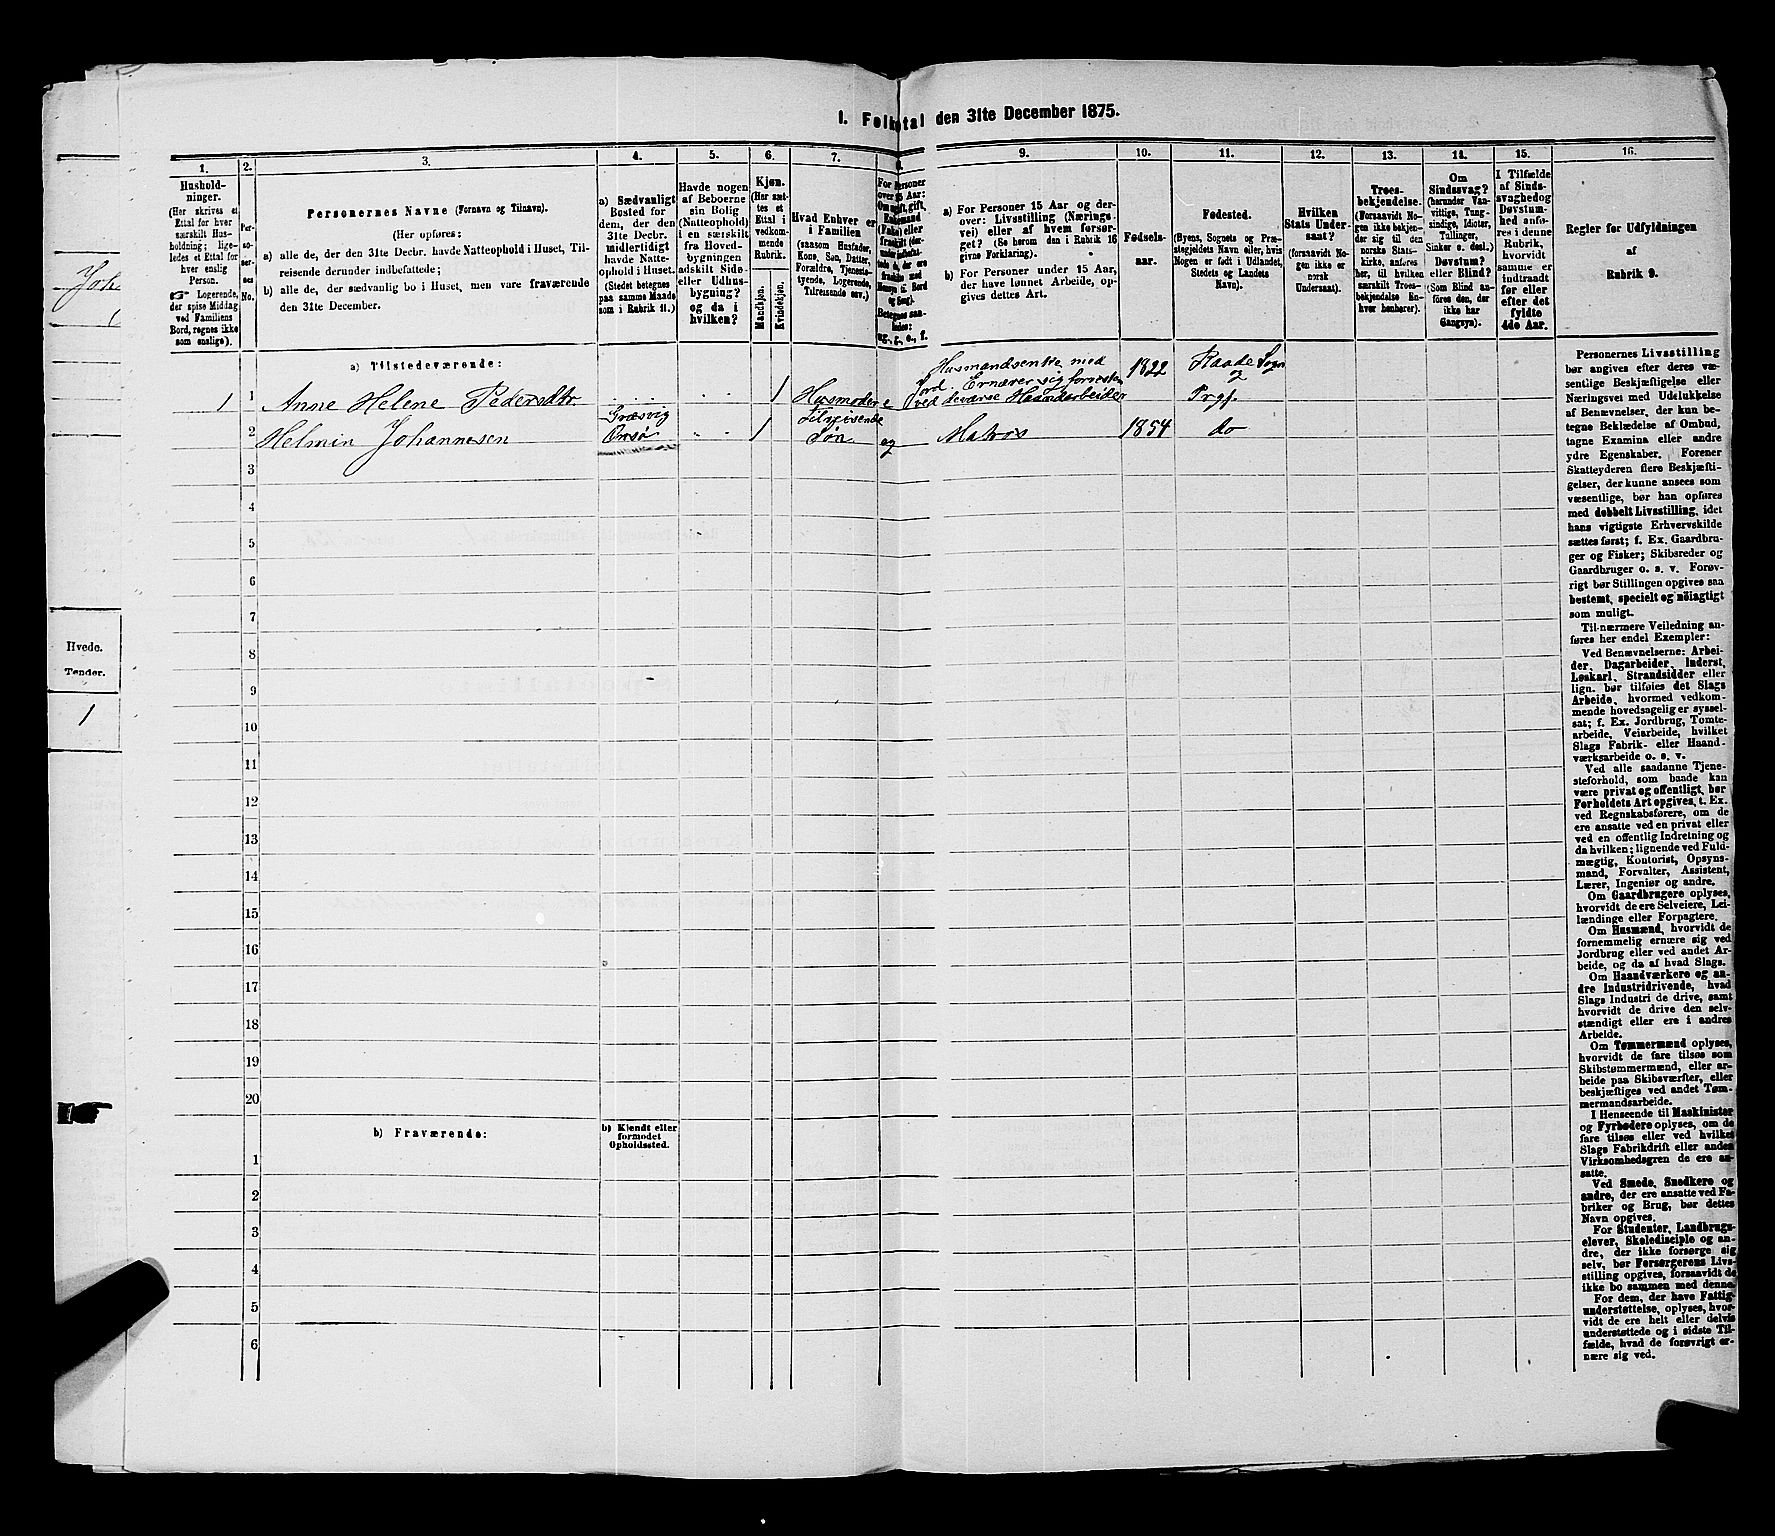 I. Folketal den 31te December 1875.
1.
2.
3.
4.
5.
6.
7.
8.
9.
10.
11.
12.
13.
14.
15.
16.
Hushold-
ninger.
(Her skrives et
Ettal for hver
særskilt Hus-
holdning; lige-
ledes et Ettal for
hver enslig
Person.
☞ Logerende,
der spise Middag
ved Familiens
Bord, regnes ikke
som enslige).
Per-
so-
ner-
nes
No.
Personernes Navne (Fornavn og Tilnavn).
(Her opføres:
a) alle de, der den 31te Decbr. havde Natteophold i Huset, Til-
reisende derunder indbefattede;
b) alle de, der sædvanlig bo i Huset, men vare fraværende
den 31te December.
a) Sædvanligt
Bosted for
dem, der den
31te Decbr.
midlertidigt
havde Natte-
ophold i Huset.
(Stedet betegnes
paa samme Maade
som i Rubrik 11.)
Havde nogen
af Beboerne
sin Bolig
(Natteophold)
i en særskilt
fra Hoved-
bygningen
adskilt Side-
eller Udhus-
bygning?
og da i
hvilken?
Kjøn.
(Her sæt-
tes et
Ettal i
vedkom-
mende
Rubrik.
Mandkjøn.
Kvindekjøn.
Hvad Enhver er
i Familien
(saasom Husfader,
Kone, Søn, Datter,
Forældre, Tjeneste-
tyende, Logerende,
Tilreisende osv.)
For Personer
over 15 Aar:
Om ugift, gift,
Enkemand
(Enke) eller
fraskilt
Betegnes saa-
ledes:
ug., g., e., f.
a) For Personer 15 Aar og der-
over: Livsstilling (Nærings-
vei) eller af hvem forsør-
get? (Se herom den i Rubrik 16
givne Forklaring).
b) For Personer under 15 Aar,
der have lønnet Arbeide, op-
gives dettes Art.
Fødsels-
aar.
Fødested.
(Byens, Sognets og Præ-
stegjeldets Navn eller, hvis
Nogen er født i Udlandet,
Stedets og Landets
Navn).
Hvilken
Stats Under-
saat?
(forsaavidt No-
gen ikke er
norsk
Undersaat).
Troes-
bekjendelse.
(Forsaavidt No-
gen ikke bekjen-
der sig til den
norske Stats-
kirke, anføres
her, til hvilken
særskilt Troes-
bekjendelse En-
hver henhører).
Om
Sindssvag?
(herunder Van-
vittige, Tung-
sindige, Idioter,
Tullinger,
Sinker o. desl.)
Døvstum?
eller Blind?
(Som Blind an-
føres den, der
ikke har
Gangsyn).
I Tilfælde
af Sinds-
svaghed og
Døvstum-
hed anfø-
res i denne
Rubrik,
hvorvidt
samme er
indtraadt
før eller
efter det
fyldte
4de Aar.
Regler for Udfyldningen
af
Rubrik 9.
a) Tilstedeværende:
1 1 Anne Helene Pedersdtr. 1 Husmoder e Husmandsenke med
Jord. Ernærer sig forresten
ved diverse Haandarbeider 1822 Raade Sogn
og
Prgj.
2 Helmin Johannesen Græsvig
Onsø 1 Tilreisende
Søn ug Matros 1854 do
3
4
5
6
7
8
9
10
11
12
13
14
15
16
17
18
19
20
b) Fraværende:
b) Kjendt eller
formodet
Opholdssted.
1
2
3
4
5
6
Personernes Livsstilling
bør angives efter deres væ-
sentlige Beskjæftigelse eller
Næringsvei med Udelukkelse
af Benævnelser, der kun be-
tegne Beklædelse af Ombud,
tagne Examina eller andre
ydre Egenskaber. Forener
Skatteyderen flere Beskjæfti-
gelser, der kunne ansees som
væsentlige, bør han opføres
med dobbelt Livsstilling, idet
hans vigtigste Erhvervskilde
sættes først; f. Ex. Gaardbru-
ger og Fisker; Skibsreder og
Gaardbruger o. s. v. Forøv-
rigt bør Stillingen opgives saa
bestemt, specielt og nøiagtigt
som muligt.
Til nærmere Veiledning an-
føres her endel Exempler:
Ved Benævnelserne: Arbei-
der, Dagarbeider, Inderst,
Løskarl, Strandsidder eller
lign. bør tilføies det Slags
Arbeide, hvormed vedkom-
mende hovedsagelig er syssel-
sat; f. Ex. Jordbrug, Tomte-
arbeide, Veiarbeide, hvilket
Slags Fabrik- eller Haand-
værksarbeide o. s. v.
Ved alle saadanne Tjene-
steforhold, som baade kan
være privat og offentligt, bør
Forholdets Art opgives, t. Ex.
ved Regnskabsførere, om de
ere ansatte ved en privat eller
ved en offentlig Indretning og
da hvilken; lignende ved Fuld-
mægtig, Kontorist, Opsyns-
mand, Forvalter, Assistent,
Lærer, Ingeniør og andre.
Om Gaardbrugere oplyses,
hvorvidt de ere Selveiere, Lei-
lændinge eller Forpagtere.
Om Husmænd, hvorvidt de
fornemmelig ernære sig ved
Jordbrug eller ved andet Ar-
beide, og da af hvad Slags.
Om Haandværkere og an-
dre Industridrivende, hvad
Slags Industri de drive, samt
hvorvidt de drive den selv-
stændigt eller ere i andres
Arbeide.
Om Tømmermænd oplyses,
hvorvidt de fare tilsøs som
Skibstømmermænd, eller ar-
beide paa Skibsværfter, eller
beskjæftiges ved andet Tøm-
mermandsarbeide.
I Henseende til Maskinister
og Fyrbødere oplyses, om de
fare tilsøs eller ved hvilket
Slags Fabrikdrift eller anden
Virksomhedsgren de ere an-
satte.
Ved Smede, Snedkere og
andre, der ere ansatte ved Fa-
briker og Brug, bør dettes
Navn opgives.
For Studenter, Landbrugs-
elever, Skoledisciple og an-
dre, der ikke forsørge sig
selv, bør Forsørgerens Livs-
stilling opgives, forsaavidt de
ikke bo sammen med denne.
For dem, der have Fattig-
understøttelse, oplyses, hvor-
vidt de ere helt eller delvis
understøttede og i sidste Til-
fælde, hvad de forøvrigt er-
nære sig ved.
Hvede.
Tønder.
1